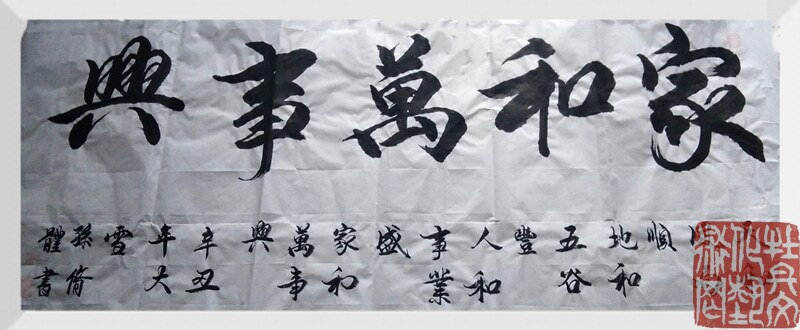 家和萬事興
順
地和
五谷
豐
人和
事業
盛
家和
萬事
興
辛丑
年大
雪
孫脩
體書